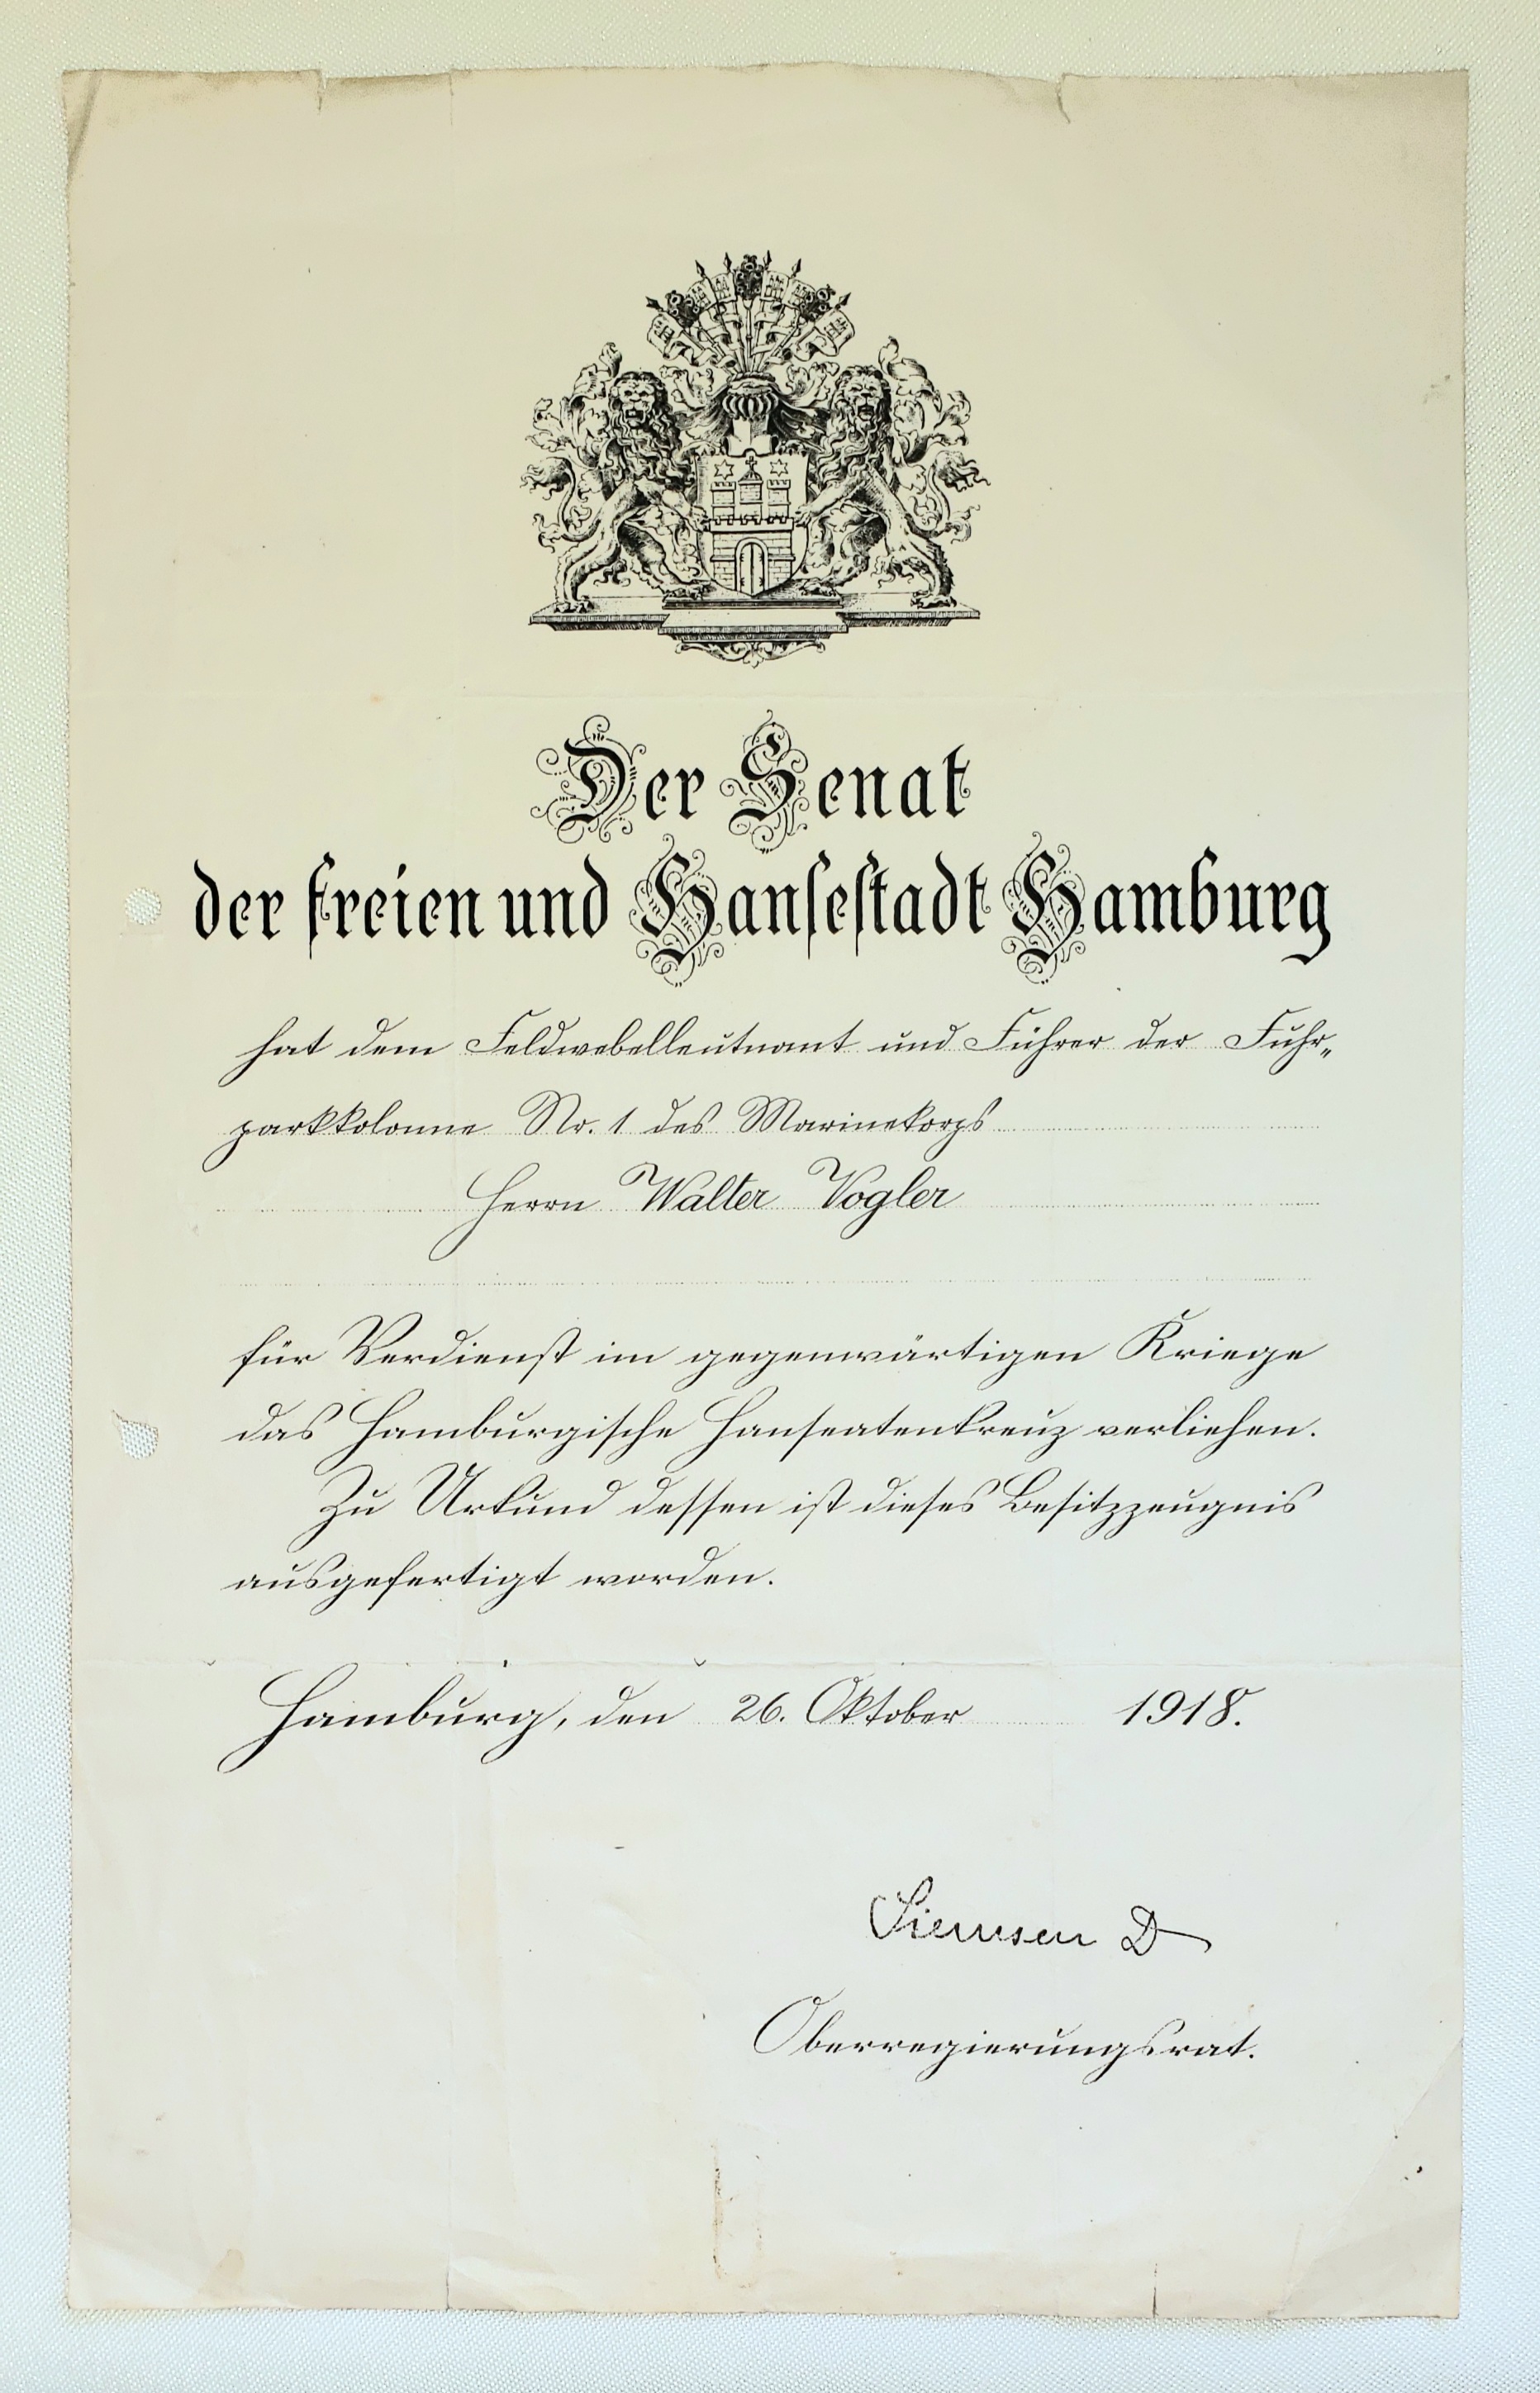 Der Senat
der freien und Hansestadt Hamburg
hat dem Feldwebelleutnant und Führer der Fuhr„
parkkolonne Nr. 1 des Marinekorps
Herrn Walter Vogler
für Verdienst im gegenwärtigen Kriege
das Hamburgische Hanseatenkreuz verliehen.
Zu Urkund dessen ist dieses Besitzzeugnis
ausgefertigt worden.
Hamburg, den 26. Oktober 1918.
Siemsen D
Oberregierungsrat.